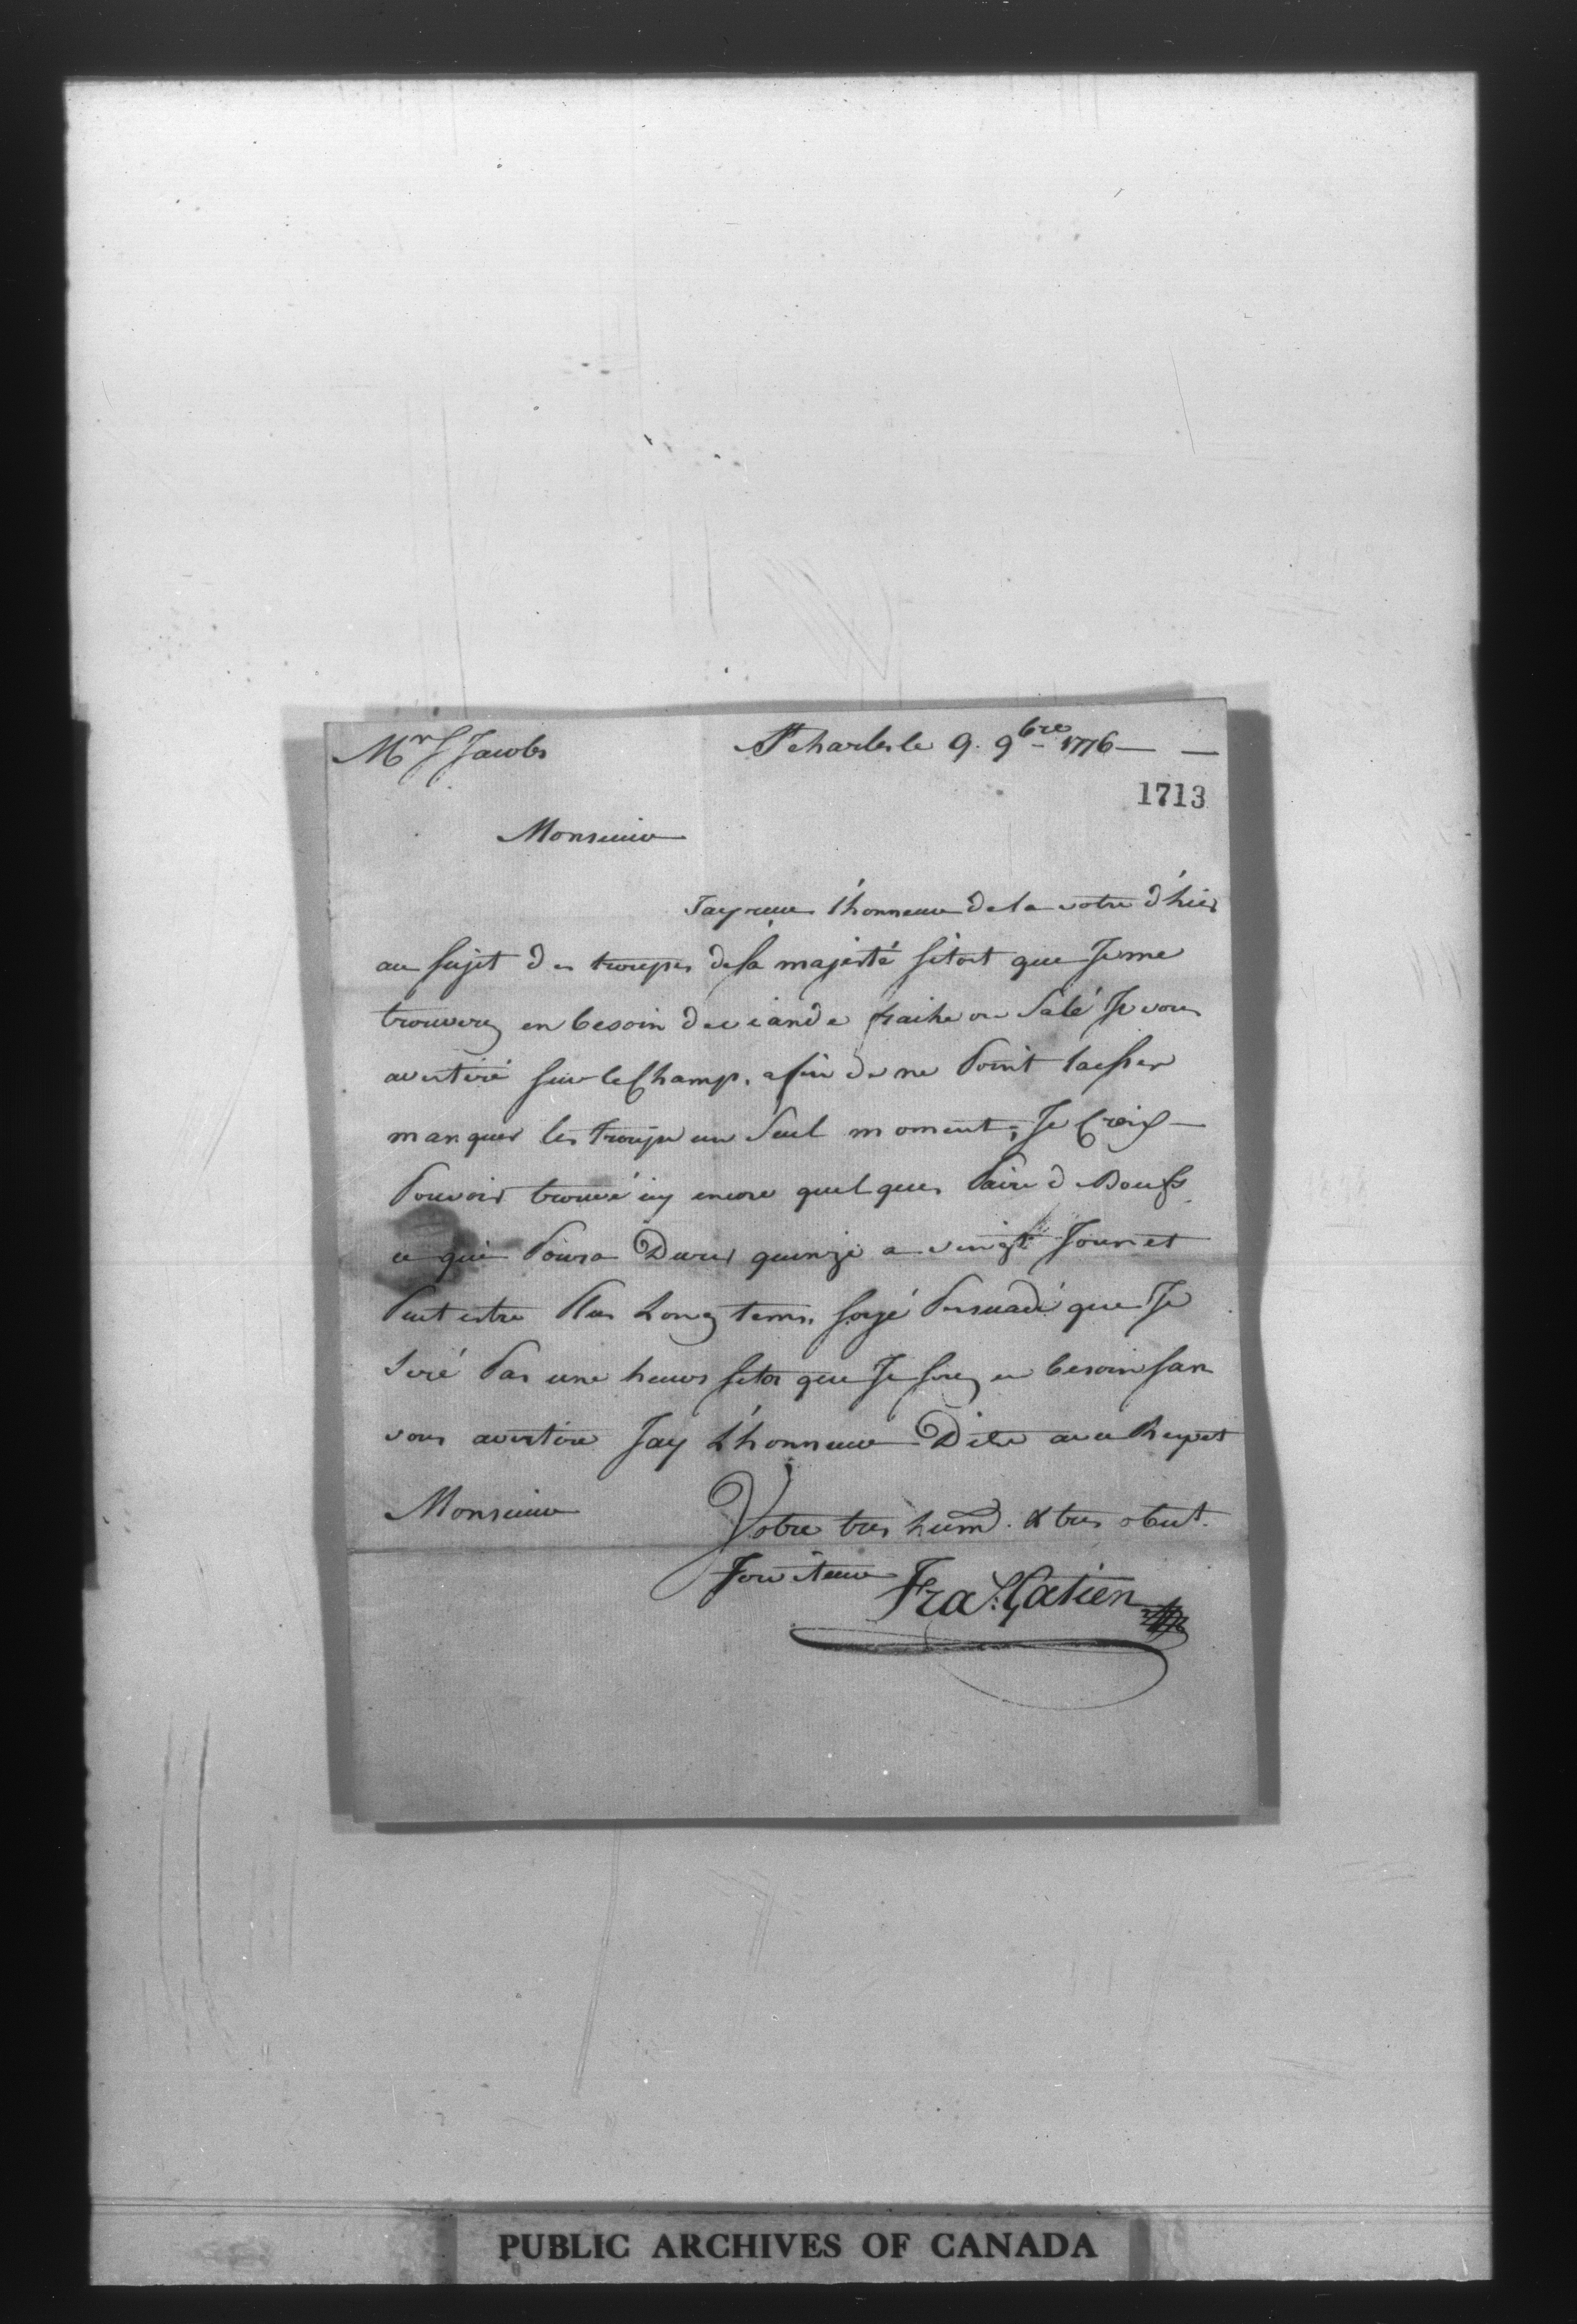 Mr S Jacobs
St charles le 9. 9bre 1776
1713
Monsieur
Jay reue l'honneur de la votre d'hier
au sujet des troupes de sa majesté sitost que Je me
trouverey en besoin de viande fraiche ou Salé Je vous
avertiré sur le Champ. afin de ne Point laisser
manquer les troupe un Seul moment; Je Crois
Pouvoir trouvé icy encore quelques Paire de Boeufs
ce qui Poura Durer quinze a vingt Jour et
Peut estre Plus Long tems, soyé Persuadé que Je
Seré Pas une heure sitos que Je serey en besoin san
vous avertire Jay L'honneur D'etre avec Respet
Monsieur
Votre tres humb. & tres obeit.
Serviteur
Fra S: Gatien
PUBLIC ARCHIVES OF CANADA